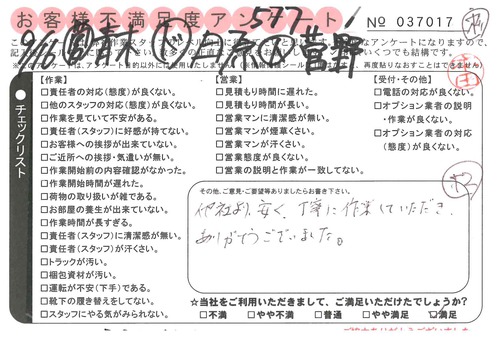 お客様不満足度アンケート
№ 037017
577
9/6
チェックリスト
【作業】
□責任者の対応(態度)が良くない。
□他のスタッフの対応(態度)が良くない。
□作業を見ていて不安がある。
□責任者(スタッフ)に好感が持てない。
□お客様への挨拶が出来ていない。
□ご近所への挨拶・気遣いが無い。
□作業開始前の内容確認がなかった。
□作業開始時間が遅れた。
□荷物の取り扱いが雑である。
□お部屋の養生が出来ていない。
□作業時間が長すぎる。
□責任者(スタッフ)に清潔感が無い。
□責任者(スタッフ)が汗くさい。
□トラックが汚い。
□梱包資材が汚い。
□運転が不安(下手)である。
□靴下の履き替えをしてない。
□スタッフにやる気がみられない。
【営業】
□見積もり時間に遅れた。
□見積もり時間が長い。
□営業マンに清潔感が無い。
□営業マンが煙草くさい。
□営業マンが汗くさい。
□営業態度が良くない。
□営業の説明と作業が一致してない。
【受付・その他】
□電話の対応が良くない。
□オプション業者の説明
・作業が良くない。
□オプション業者の対応
(態度)が良くない。
その他、ご意見・ご要望等ありましたらお書き下さい。
他社より安く、丁寧に作業していただき、
ありがとうございました。
☆当社をご利用いただきまして、ご満足いただけたでしょうか?
□不満 □やや不満 □普通 □やや満足 ☑満足